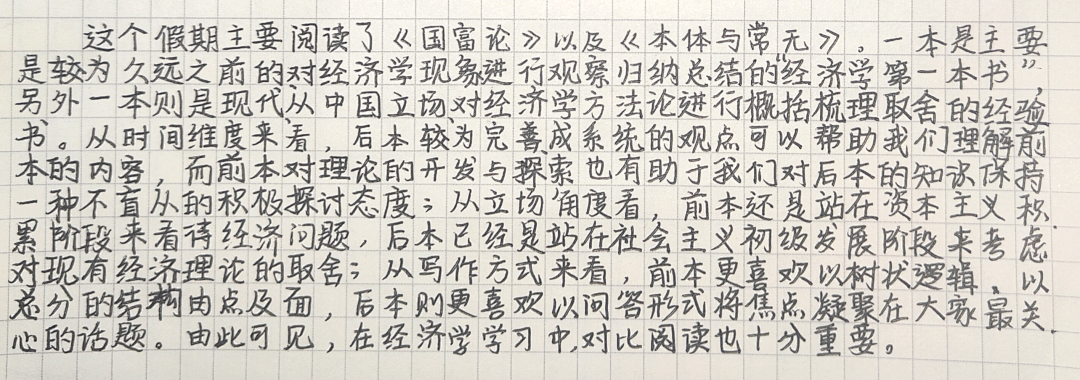 这个假期主要阅读了《国富论》以及《本体与常无》。一本是主要
是较为久远之前的对经济学现象进行观察归纳总结的“经济学第一本书”,
另外一本则是现代从中国立场对经济学方法论进行概括梳理取舍的经验
书。从时间维度来看,后本较为完善成系统的观点可以帮助我们理解前
本的内容,而前本对理论的开发与探索也有助于我们对后本的知识保持
一种不盲从的积极探讨态度;从立场角度看,前本还是站在资本主义积
累阶段来看待经济问题,后本已经是站在社会主义初级发展阶段来考虑
对现有经济理论的取舍;从写作方式来看,前本更喜欢以树状逻辑、以
总分的结构由点及面,后本则更喜欢以问答形式将焦点凝聚在大家最关
心的话题。由此可见,在经济学学习中,对比阅读也十分重要。